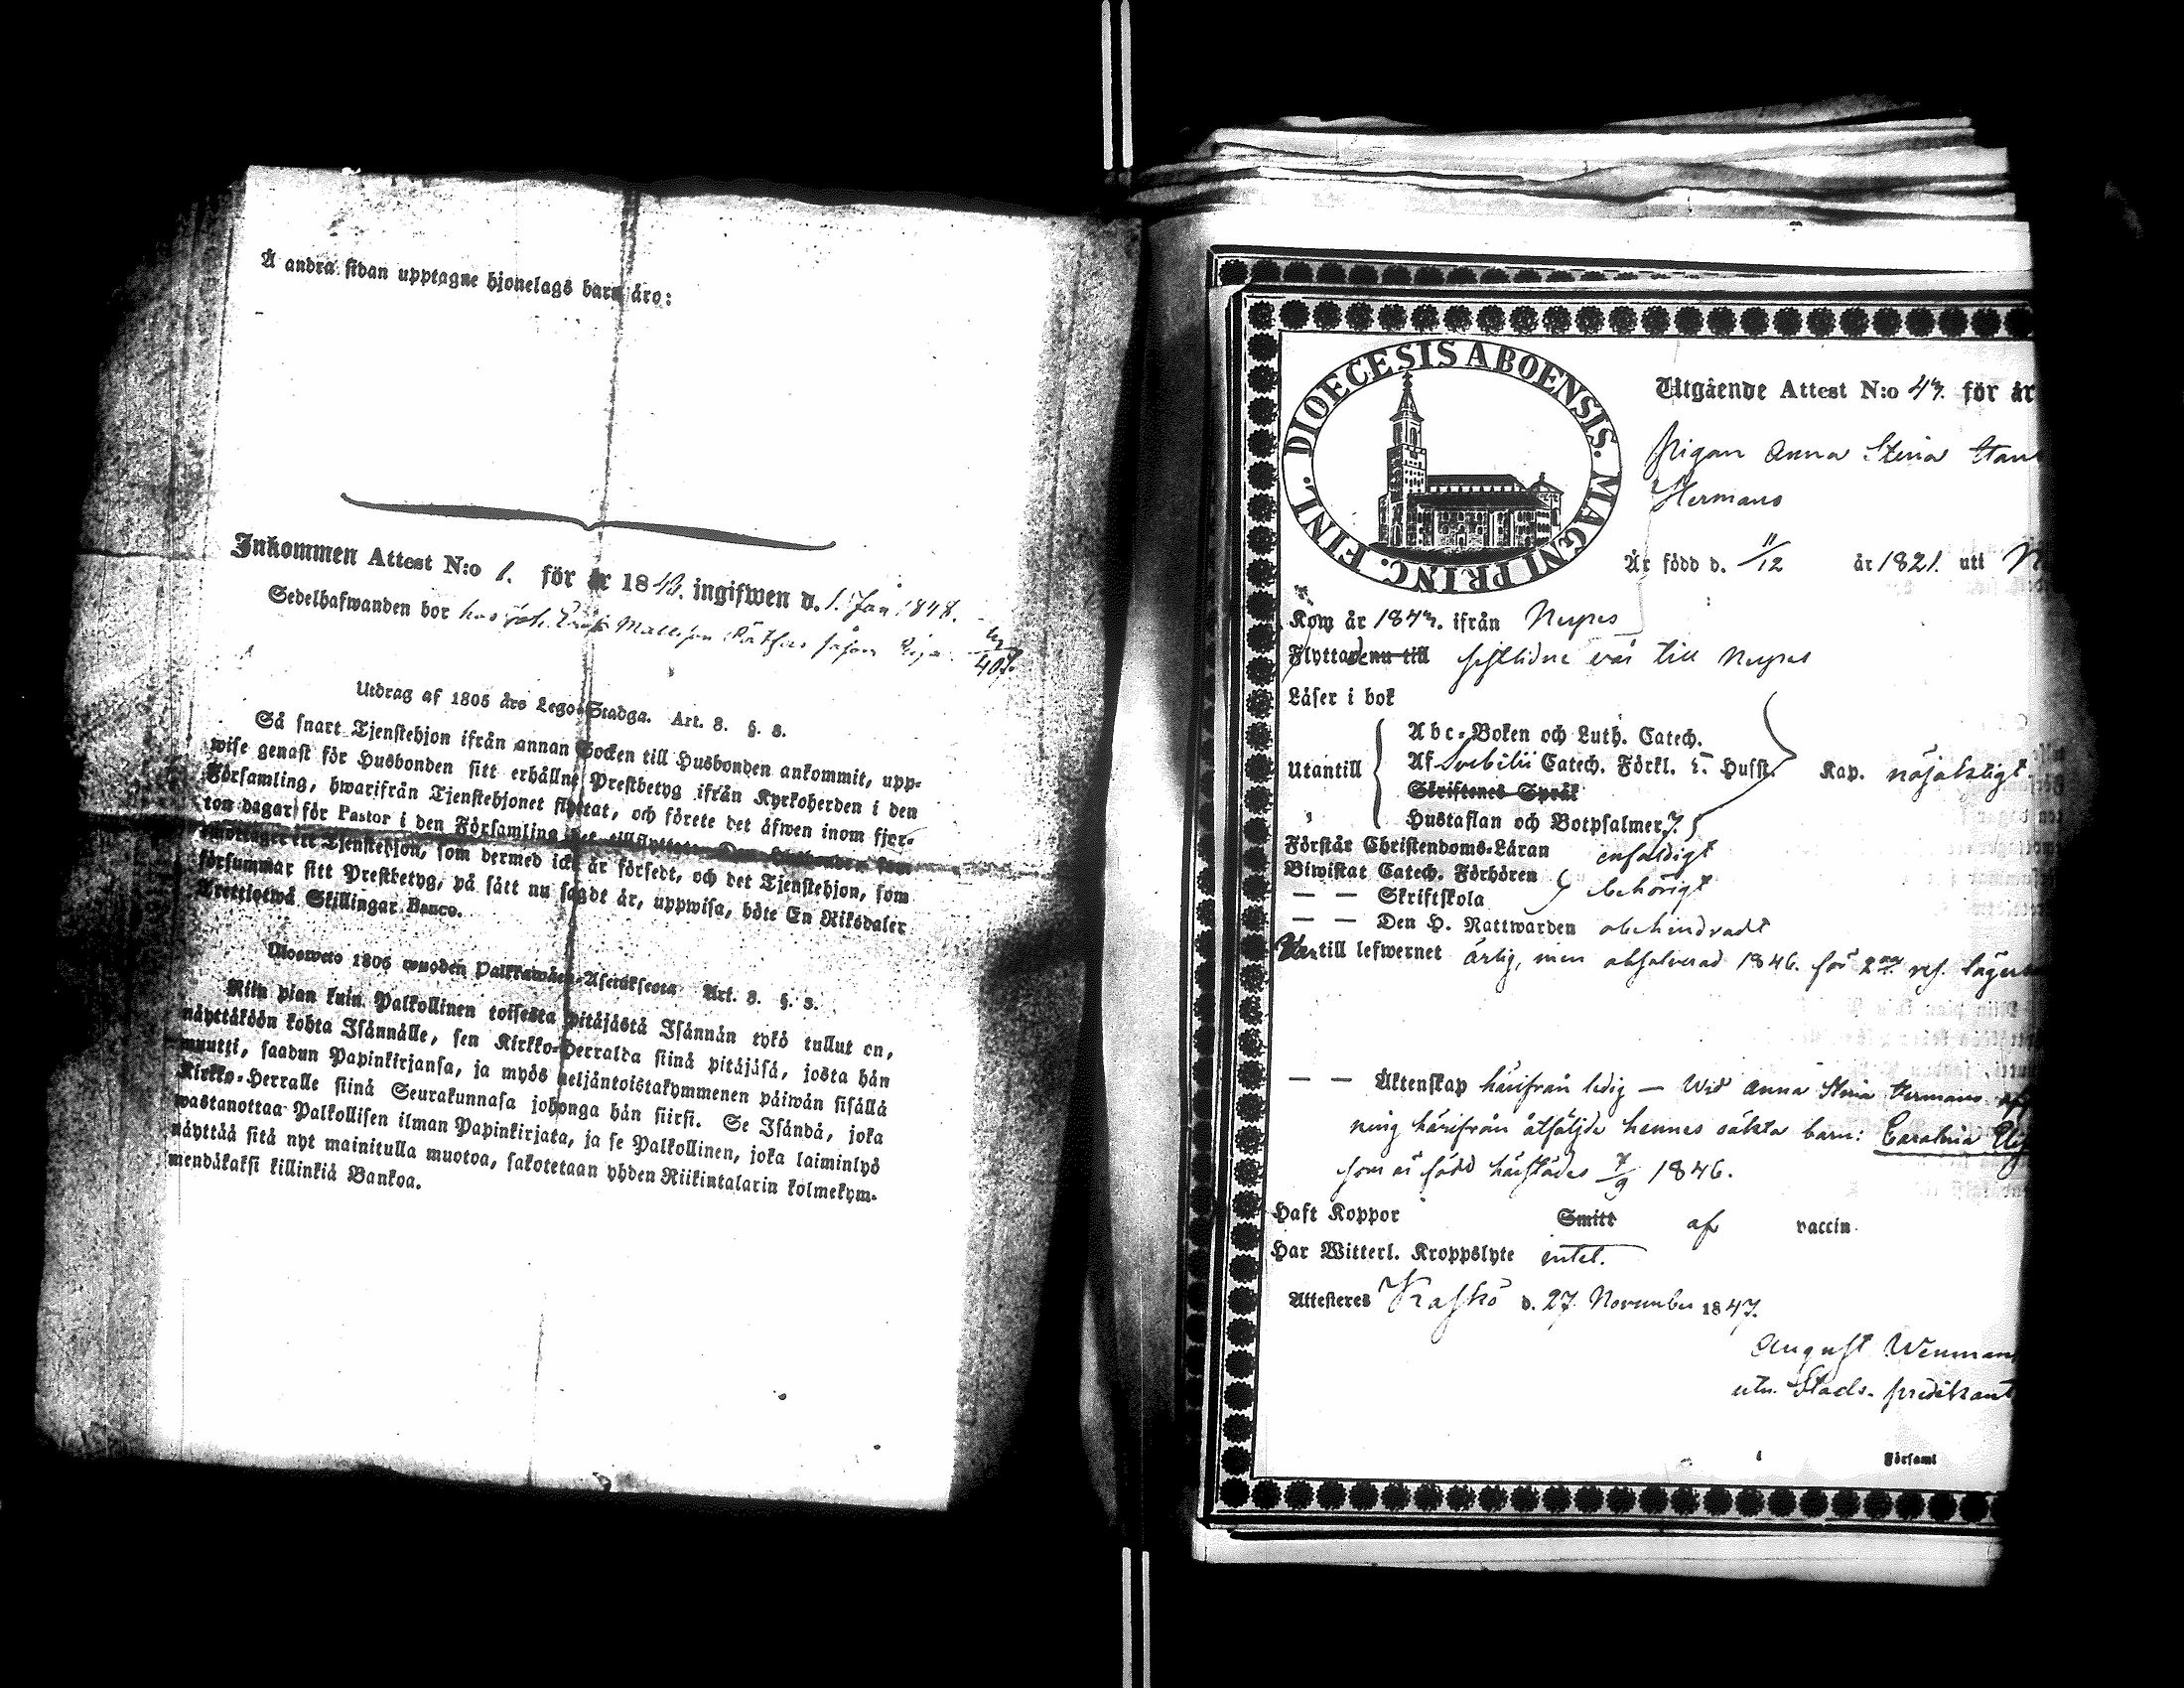 Å andra sidan upptagne hjonelags barn äro:
Inkommen Attest N:o 1. för år 1848. ingifwen d. 1. Jan 1848.
Sedelhafwanden bor hos Joh.
407.
Utdrag af 1805 års Lego-Stadga. Art. 8. §. 8.
Så snart Tjenstehjon ifrån annan Socken till Husbonden ankommit, upp-
wise genast för Husbonden sitt erhållne Prestbetyg ifrån Kyrkoherden i den
Församling, hwarifrån Tjenstehjonet flyttat, och förete det äfwen inom fjor-
ton dagar för Pastor i den Församling det tillflyttat. Den Husbonde, som
emottager ett Tjenstehjon, som dermed icke är försedt, och det Tjenstehjon, som
försummar sitt Prestbetyg, på sätt nu sagdt är, uppwisa, böte En Riksdaler
Trettiotwå Skillingar Banco.
Ulosweto 1805 wuoden Palkkawäen-Asetuksesta Art. 8. §. 8.
Niin pian kuin Palkollinen toisesta pitäjästä Isännän tykö tullut on,
näyttäköön kohta Isännälle, sen Kirkko-Herralda siinä pitäjäsä, josta hän
muutti, saadun Papinkirjansa, ja myös neljäntoistakymmenen päiwän sisällä
Kirkko-Herralle siinä Seurakunnasa johonga hän siirsi. Se Isändä, joka
wastanottaa Palkollisen ilman Papinkirjata, ja se Palkollinen, joka laiminlyö
näyttää sitä nyt mainitulla muotoa, sakotetaan yhden Riikintalarin kolmekym-
mendäkaksi killinkiä Bankoa.
DIOECESIS ABOENSIS. MAGNI PRINC. FINL.
Utgående Attest N:o 43. för år
Pigan Anna Stina
Hermans
Är född d. 11/12 år 1821. uti N
Kom år 1843. ifrån Nerpes
Flyttade nu till sistlidne vår till Nerpes
Läser i bok
Abc-Boken och Luth. Catech.
Utantill Af Svebilii Catech. Förkl. t. Husst. Kap. nöjaktigt
Skriftenes Språk
Hustaflan och Botpsalmer 7.
Förstår Christendoms-Läran enfaldigt
Biwistat Catech. Förhören behörigt
— — Skriftskola
— — Den H. Nattwarden obehindradt
Var till lefwernet ärlig, men absolverad 1846. för 2
— — Äktenskap härifrån ledig — Wid Anna Stina Hermans
ning härifrån åtföljde hennes oäkta barn: Carolina
som är född härstädes 7/9 1846.
Haft Koppor Smitt af vaccin
Har Witterl. Kroppslyte intet.
Attesteres Kaskö d. 27 November 1847.
August
utn. Stads-predikant
Församl